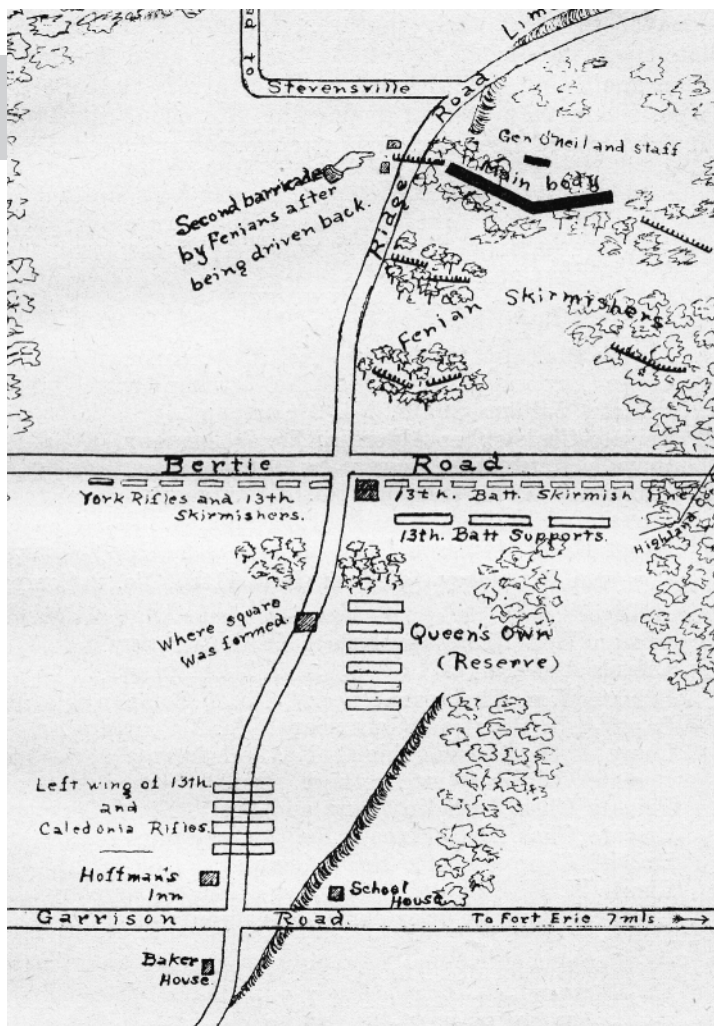 Lim
to
Stevensville
Road
Gen O'Neil and staff
Main body
Second barricade
by Fenians after
being driven back.
Ridge
Skirmishers
Fenian
Bertie Road
York Rifles and 13th
Skirmishers.
13th Batt Skirmish line
13th. Batt Supports.
Highland
Where square
was formed
Queen's Own
(Reserve)
Left wing of 13th.
and
Caledonia Rifles.
Hoffman's
Inn
School
House
Garrison Road.
To Fort Erie 7 mls.
Baker
House